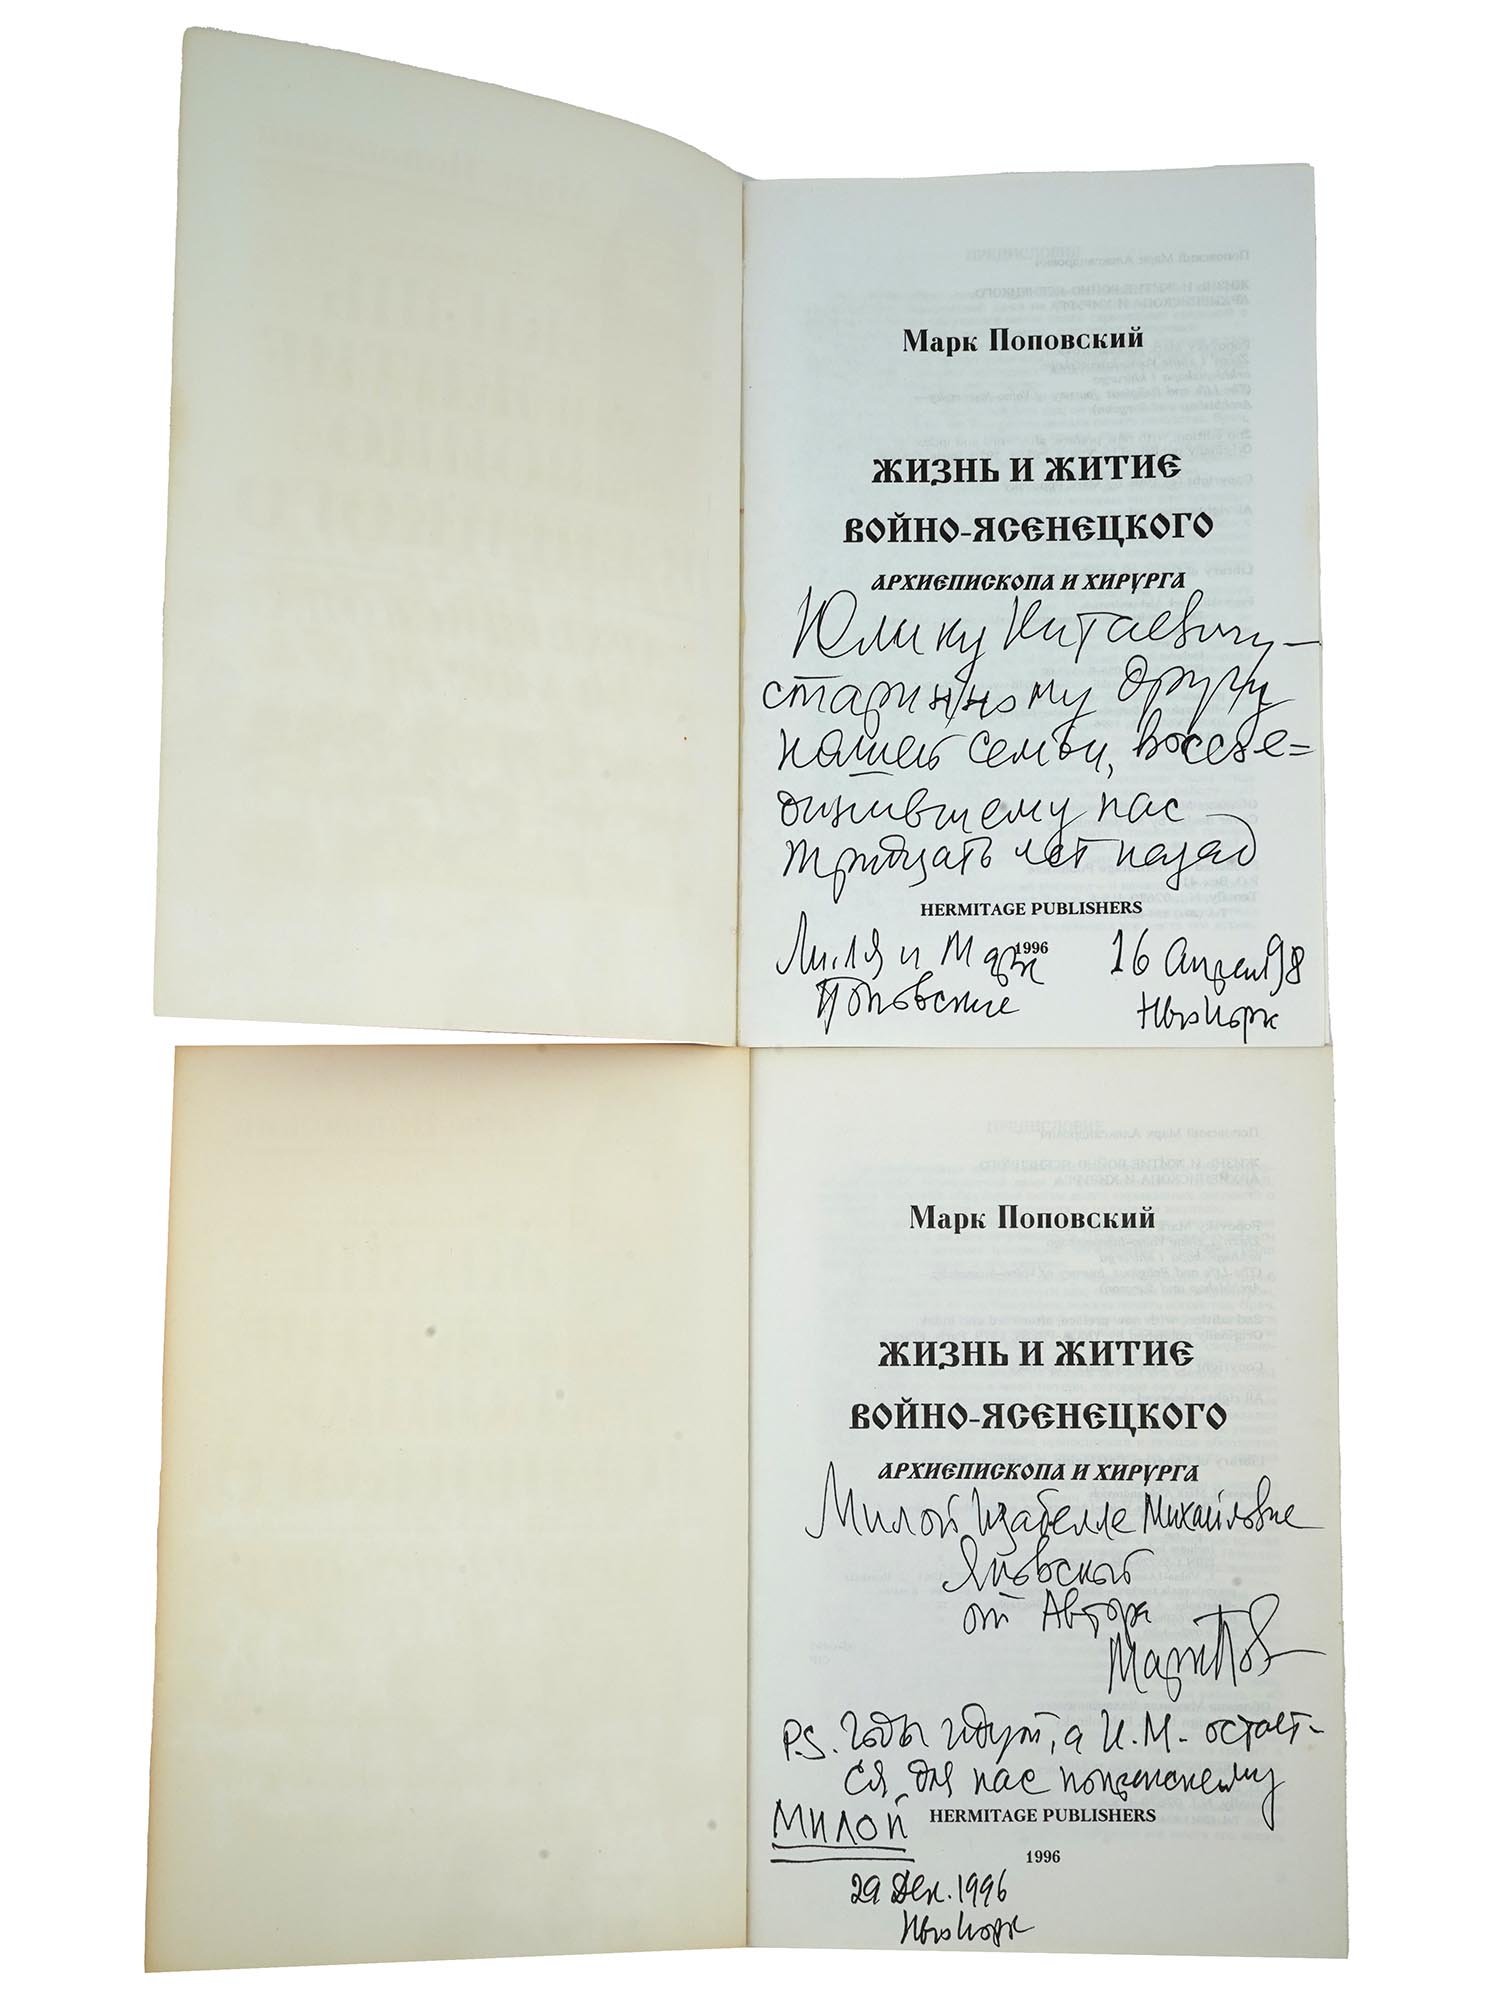 Марк Поповский
ЖИЗНЬ И ЖИТИЕ
ВОЙНО-ЯСЕНЕЦКОГО
АРХИЕПИСКОПА И ХИРУРГА
Юлику Китаевичу -
старинному другу
нашей семьи, воссое=
динившему нас
тридцать лет назад
HERMITAGE PUBLISHERS
1996
Лиля и Марк
Поповские
16 Апреля 98
Нью Йорк
Марк Поповский
ЖИЗНЬ И ЖИТИЕ
ВОЙНО-ЯСЕНЕЦКОГО
АРХИЕПИСКОПА И ХИРУРГА
Милой Изабелле Михайловне
Яновской
от Автора
Марк Поп
P.S. Годы идут, а И.М. остает-
ся для нас попрежнему
МИЛОЙ
HERMITAGE PUBLISHERS
1996
29 Дек. 1996
Нью Йорк